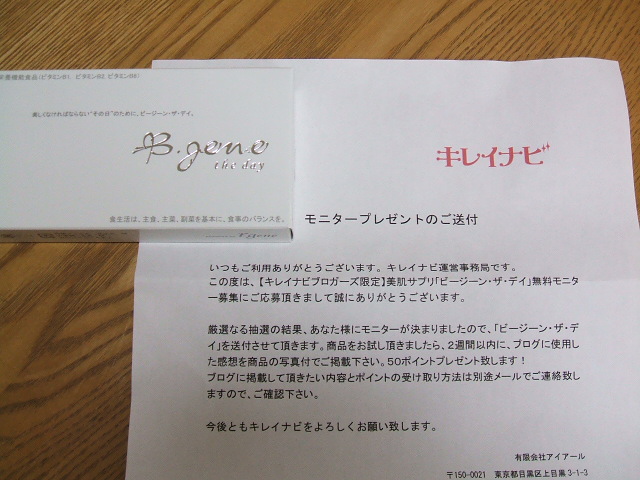 栄養機能食品(ビタミンB1、ビタミンB2、ビタミンB6)
美しくなければならない"その日"のために、ビージーン・ザ・デイ。
B.gene
the day
食生活は、主食、主菜、副菜を基本に、食事のバランスを。
B.gene
キレイナビ
モニタープレゼントのご送付
いつもご利用ありがとうございます。キレイナビ運営事務局です。
この度は、【キレイナビブロガーズ限定】美肌サプリ「ビージーン・ザ・デイ」無料モニタ
ー募集にご応募頂きまして誠にありがとうございます。
厳選なる抽選の結果、あなた様にモニターが決まりましたので、「ビージーン・ザ・デ
イ」を送付させて頂きます。商品をお試し頂きましたら、2週間以内に、ブログに使用し
た感想を商品の写真付でご掲載下さい。50ポイントプレゼント致します！
ブログに掲載して頂きたい内容とポイントの受け取り方法は別途メールでご連絡致し
ますので、ご確認下さい。
今後ともキレイナビをよろしくお願い致します。
有限会社アイアール
〒150-0021 東京都目黒区上目黒3-1-3